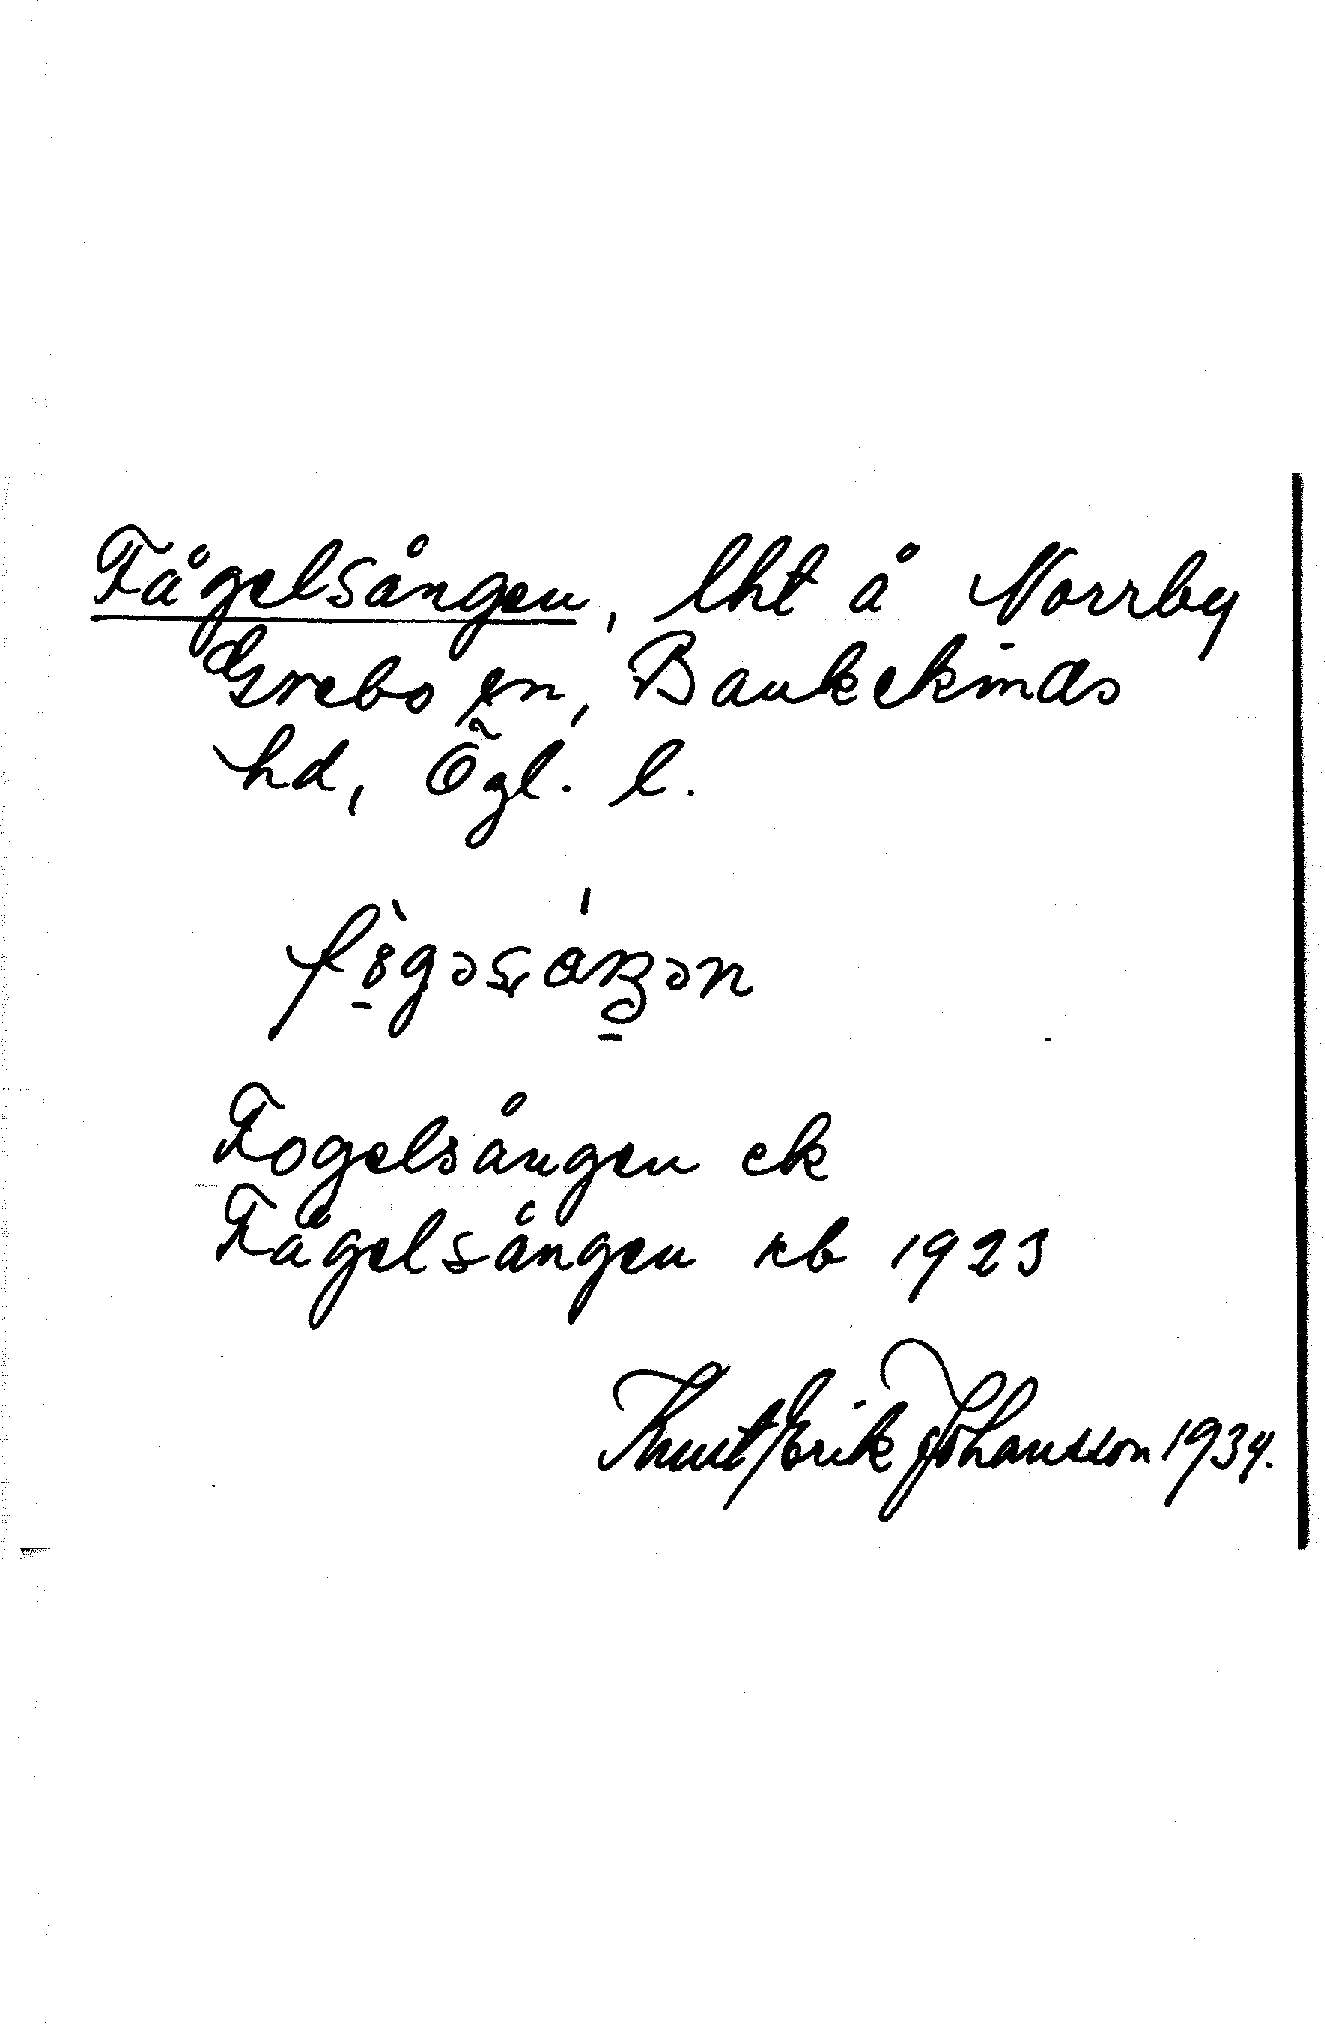 Fågelsången, lht å Norrby
Grebo sn, Bankekinds
hd, Ögl. l.
Fogelsången ek
Fågelsången kb 1923
Knut Erik Johansson 1934.